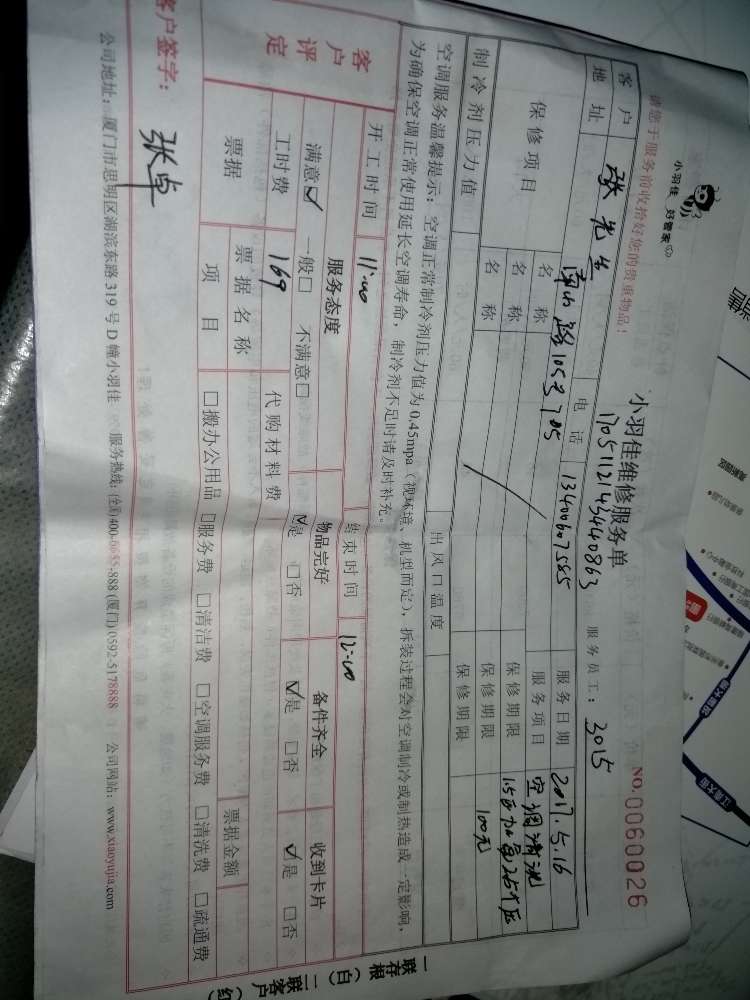 小羽佳 好管家
小羽佳维修服务单
NO.0060026
17051121434440863
请您于服务前收拾好您的贵重物品!
服务员工: 3015
客户 张先生 电话 13400607585 服务日期 2017.5.16
地址 705 服务项目 空调清洗
保修项目 名称 保修期限
名称 保修期限 100元
名称 保修期限
制冷剂压力值 出风口温度
空调服务温馨提示:空调正常制冷剂压力值为0.45mpa(视环境、机型而定),拆装过程会对空调制冷或制热造成一定影响,
为确保空调正常使用延长空调寿命,制冷剂不足时请及时补充。
开工时间 11:00 结束时间 12:00
客户评定 服务态度 物品完好 备件齐全 收到卡片
满意☑ 一般□ 不满意□ ☑是 □否 ☑是 □否 ☑是 □否
工时费 169 代购材料费
票据 票据名称 票据金额
项目 □搬办公用品 □服务费 □清洁费 □空调服务费 □清洗费 □疏通费
客户签字: 张卓
公司地址:厦门市思明区湖滨东路319号D幢小羽佳 服务热线:(全国)400-6655-888 (厦门)0592-5178888 公司网站:www.xiaoyujia.com
一联存根(白) 二联客户(红)